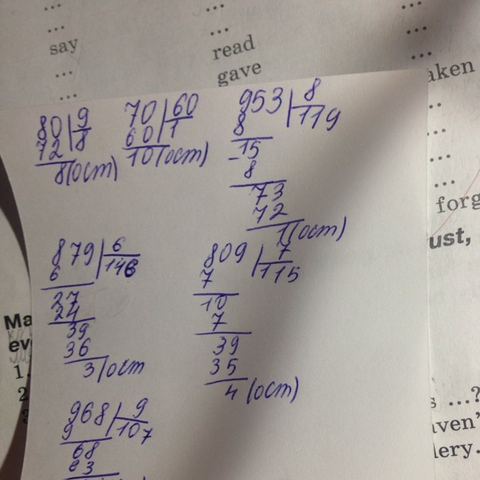 ...
...
say
read
...
gave
aken
...
...
...
...
forg
ust,
80|9
72 8
8(ост)
70|60
60 1
10(ост)
953|8
8 119
-15
8
73
72
1(ост)
879|6
6 146
27
24
39
36
3(ост
809|7
7 115
10
7
39
35
4(ост)
968|9
9 107
68
63
Ma
ev
1.
2
s ...?
aven'
lery.